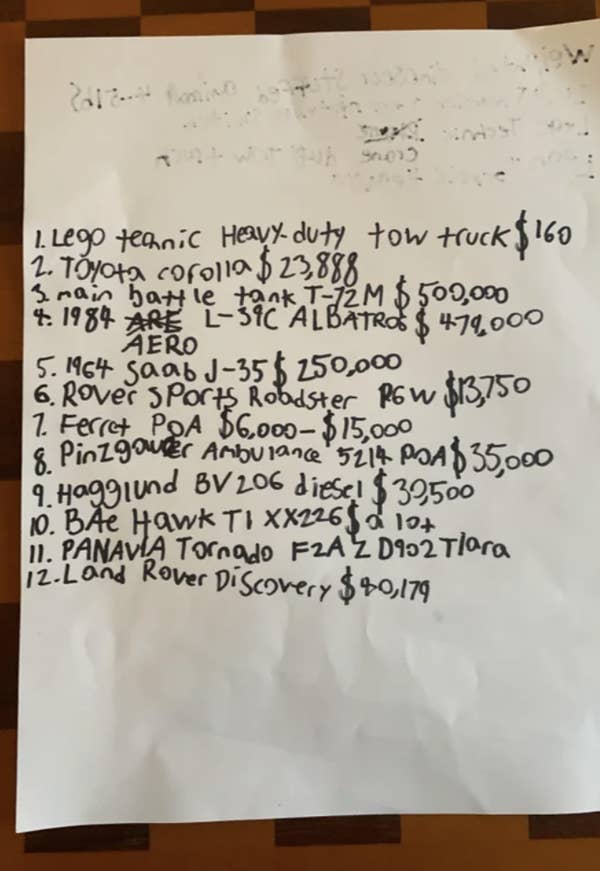 1. Lego teahnic Heavy-duty tow truck $160
2. Toyota corolla $23,888
3. main battle tank T-72M $500,000
4. 1984 ARE L-39C ALBATROS $479,000
AERO
5. 1964 Saab J-35 $250,000
6. Rover SPorts Roadster P6W $13,750
7. Ferret POA $6,000-$15,000
8. Pinzgauer Ambulance 5214 POA $35,000
9. Hagglund BV206 diesel $39,500
10. BAe Hawk T1 XX226 $a lot
11. PANAVIA Tornado F2A ZD902 Tlara
12. Land Rover Discovery